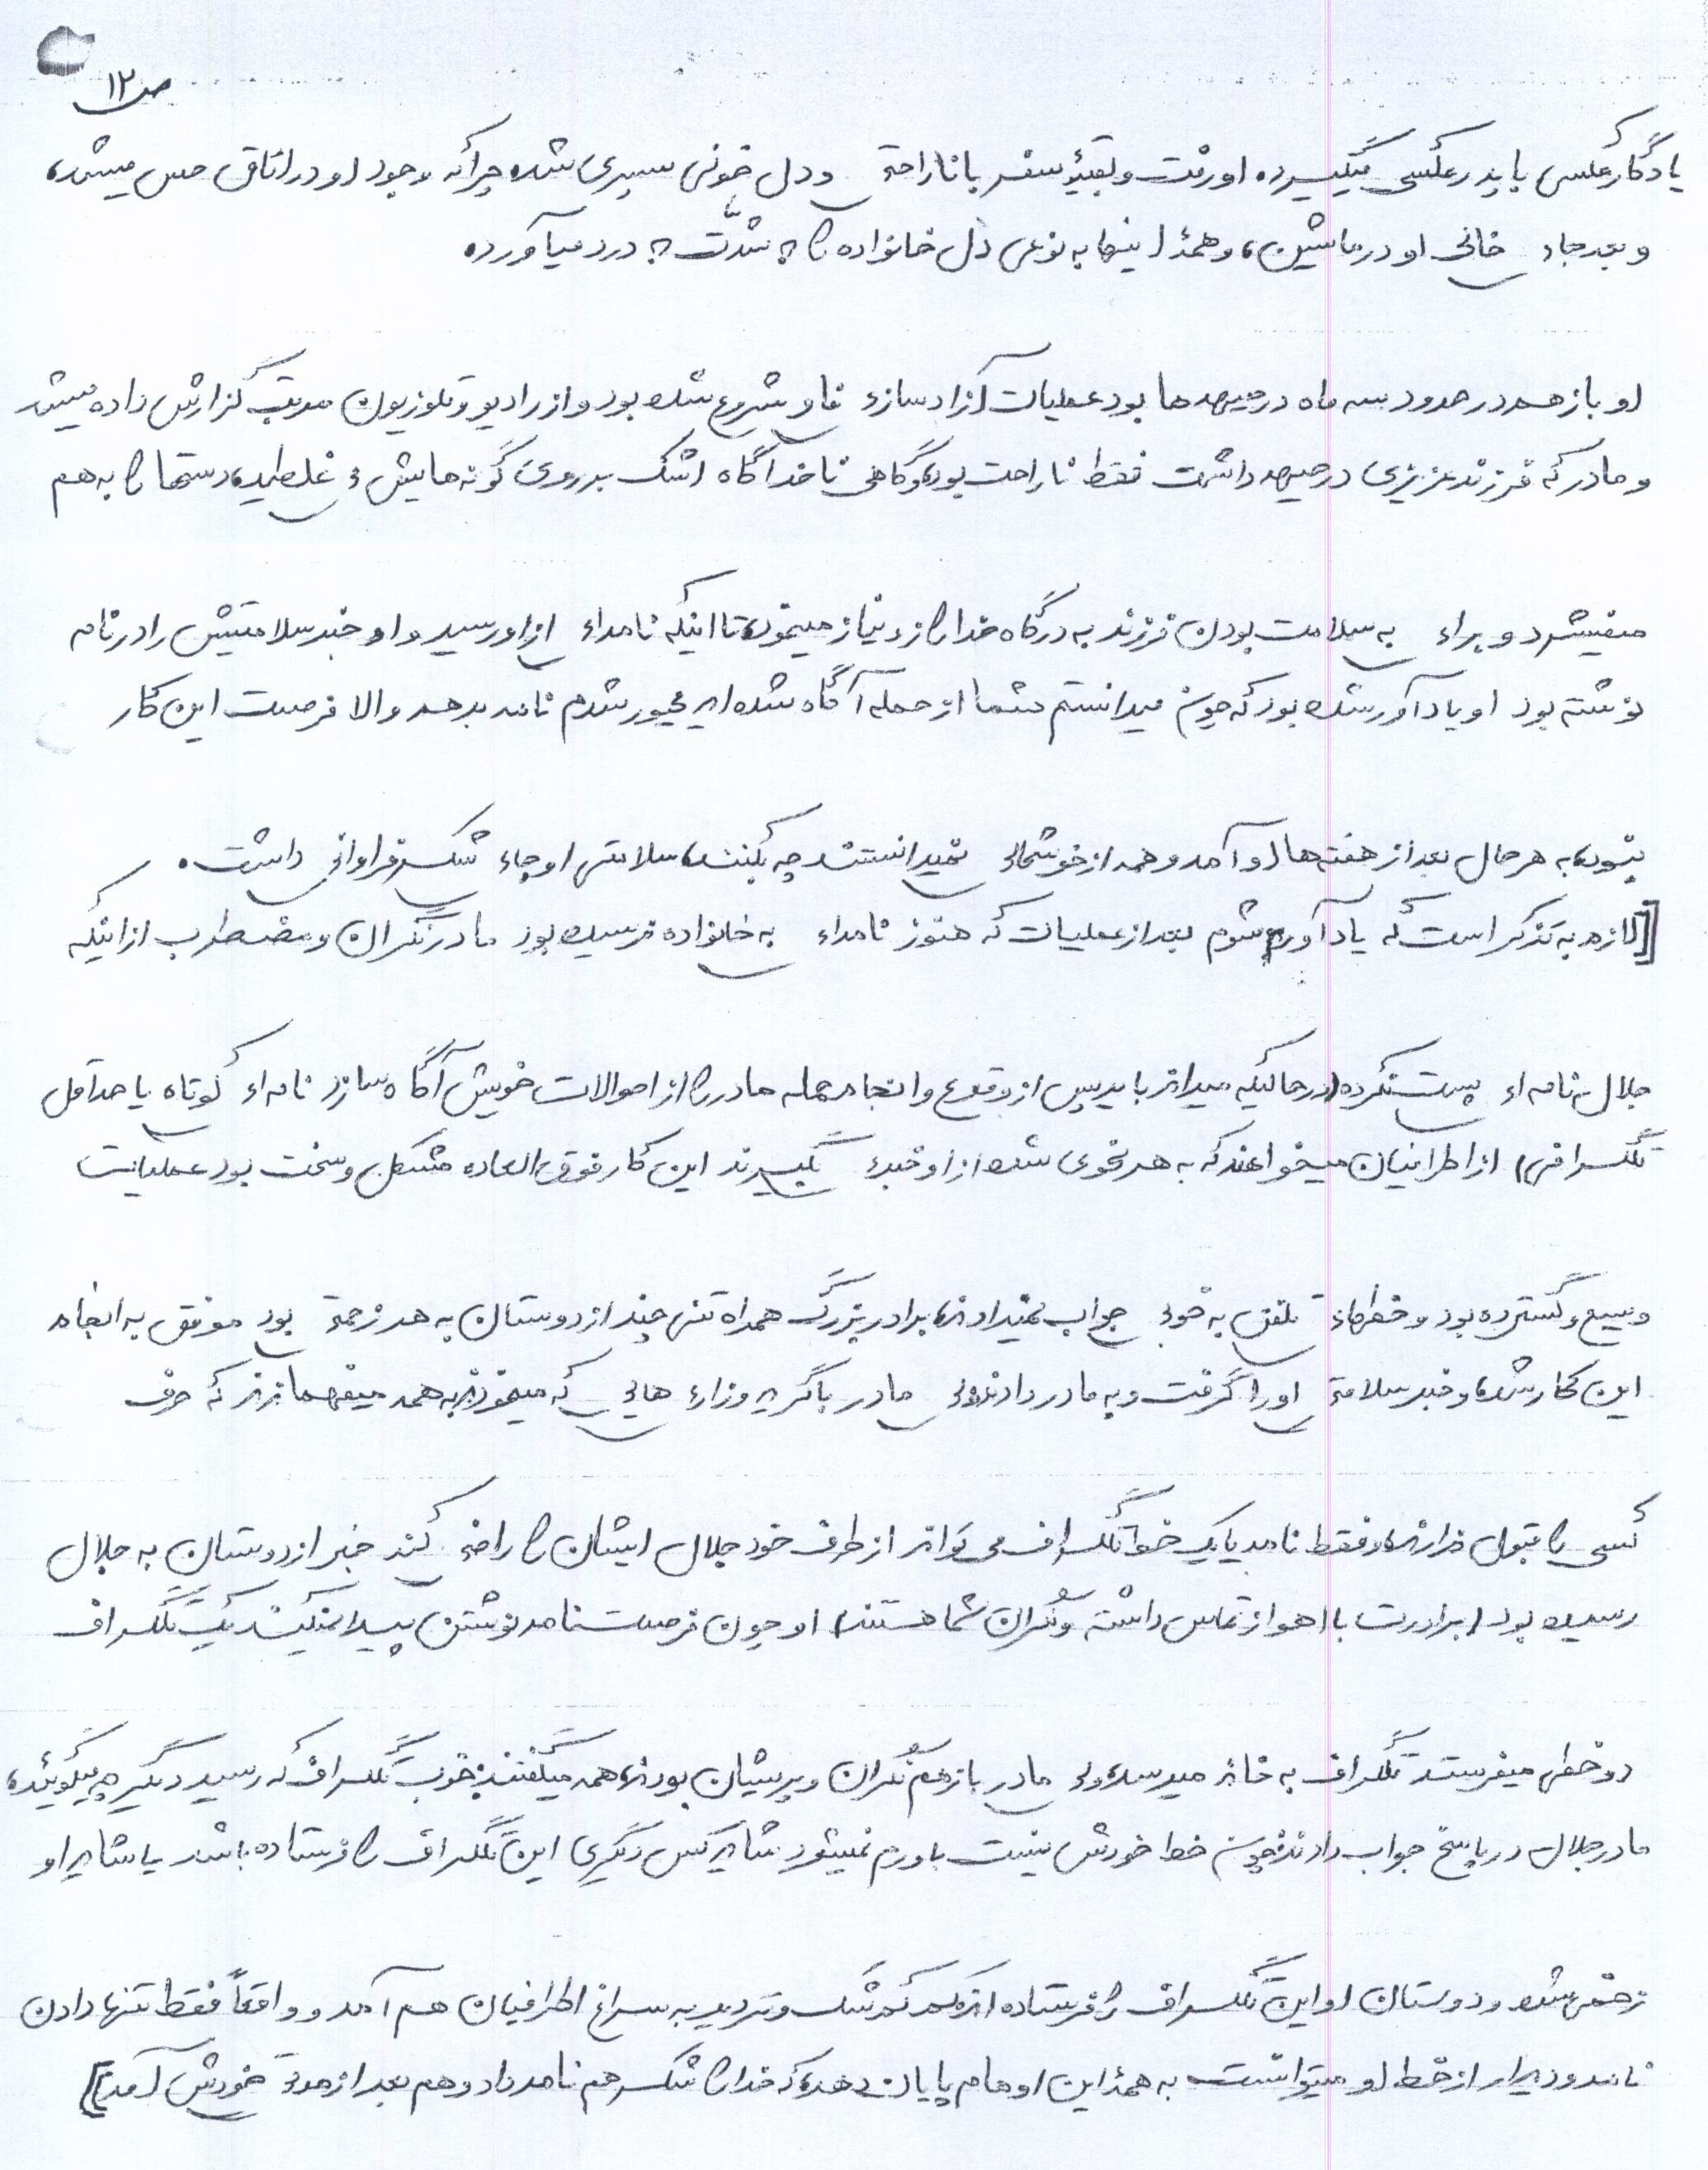 ص۱۲
یادگار عکس با پدر عکسی میگیرد، او رفت و بقیهٔ سفر با ناراحتی و دل خونی سپری شد، چرا که وجود او در اتاق حس میشد،
و بعد جای خالی او در ماشین، و همهٔ اینها به نوعی دل خانواده را به شدّت به درد میآورد.
او باز هم در حدود سه ماه در جبهه ها بود عملیات آزادسازی فاو شروع شده بود و از رادیو و تلوزیون مرتب گزارش داده میشد
و مادر که فرزند عزیزی در جبهه داشت فقط ناراحت بود، و گاهی ناخداگاه اشک بر روی گونه هایش می غلطید، دستها را به هم
میفیشرد و برای به سلامت بودن فرزند به درگاه خدا راز و نیاز مینمود، تا اینکه نامه‌ای از او رسید و او خبر سلامتیش را در نامه
نوشته بود او یادآور شده بود که چون میدانستم شما از حمله آگاه شده اید مجبور شدم نامه بدهم والا فرصت این کار
نبود، به هر حال بعد از هفته ها او آمد و همه از خوشحالی نمیدانستند چه بکنند، سلامتی او جای شکر فراوانی داشت.
[لازم به تذکر است که یادآور شوم بعد از عملیات که هنوز نامه‌ای به خانواده نرسیده بود مادر نگران و مضطرب از اینکه
جلال نامه ای پست نکرده (در حالیکه میداند باید پس از وقوع و انجام حمله مادر را از احوالات خویش آگاه سازد نامه ای کوتاه یا حداقل
تلگرافی) از اطرافیان میخواهند که به هر نحوی شده از او خبری بگیرند این کار فوق العاده مشکل و سخت بود عملیات
وسیع و گسترده بود و خطهای تلفن به خوبی جواب نمیدادند، برادر بزرگ همراه تنی چند از دوستان به هر زحمتی بود موفق به انجام
این کار شد، و خبر سلامتی او را گرفت و به مادر دادند ولی مادر با گریه و زاری هایی که مینمودند به همه میفهماندند که حرف
کسی را قبول ندارند، و فقط نامه یا یک خط تلگراف می تواند از طرف خود جلال ایشان را راضی کند خبر از دوستان به جلال
رسیده بود (برادرت با اهواز تماس داشته و نگران شما هستند) او چون فرصت نامه نوشتن پیدا نمیکند یک تلگراف
دو خطی میفرستد تلگراف به خانه میرسد، ولی مادر باز هم نگران و پریشان بودند، همه میگفتند خوب تلگراف که رسید دیگر چه میگوئید،
مادر جلال در پاسخ جواب دادند چون خط خودش نیست باورم نمیشود شاید کس دیگری این تلگراف را فرستاده باشد یا شاید او
زخمی شده و دوستان او این تلگراف را فرستاده اند کم کم شک و تردید به سراغ اطرافیان هم آمد و واقعاً فقط تنها دادن
نامه و دیدار از خط او میتوانست به همهٔ این اوهام پایان دهد، که خدا را شکر هم نامه داد و هم بعد از مدتی خودش آمد]